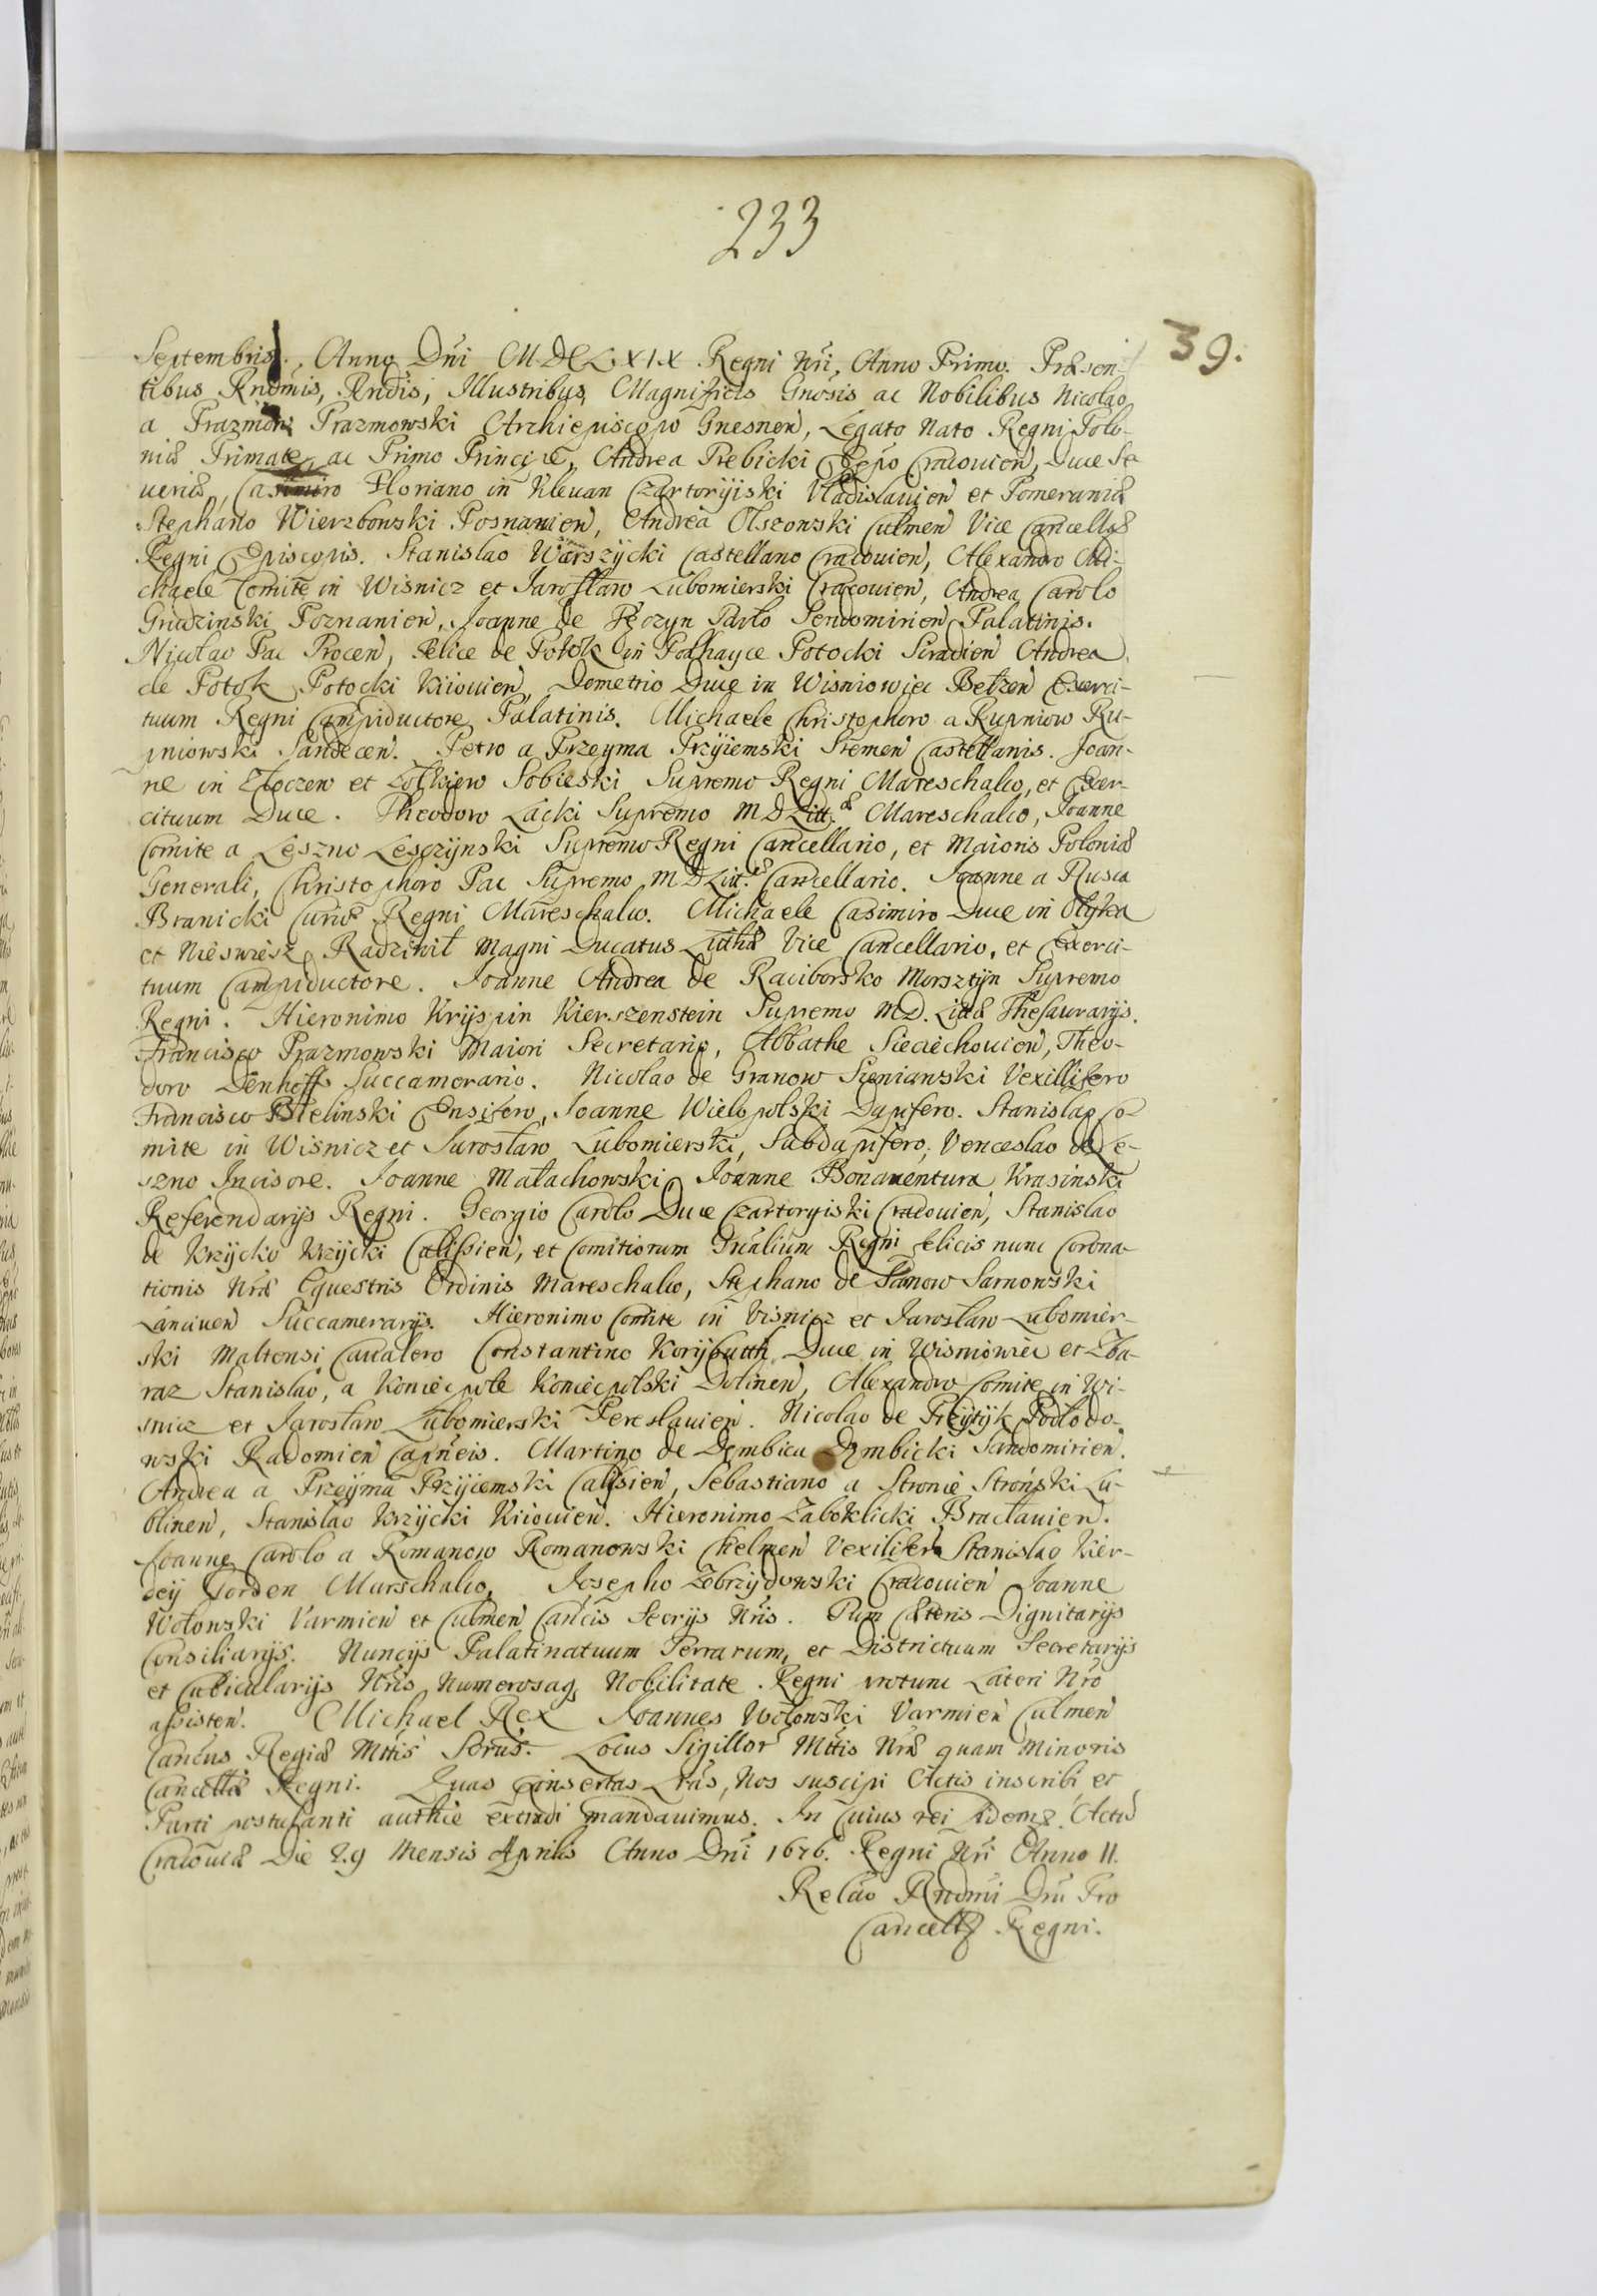 233
39.
Septembris. Anno Dńi MDCLXIX Regni Nŕi, Anno Primo. Præsen-
tibus Rndmis, Rndis, Illustribus, Magnificis Gnosis ac Nobilibus Nicolao
a Prazmow Prazmowski Archiepiscopo Gnesneń, Legato Nato Regni Polo-
niæ Primate, ac Primo Principe, Andrea Trebicki Eppo Cracouień, Duce Se
ueriæ, Casimiro Floriano in Klevan Czartoryiski Vladislauień et Pomeraniæ
Stephano Wierzbowski Posnanień, Andrea Olszowski Culmeń Vice Cancellæ
Regni Episcopis. Stanislao Warszycki Castellano Cracouień, Alexandro Mi-
chaele Comite in Wisnicz et Jarosław Lubomierski Cracouień, Andrea Carolo
Grudzinski Poznanień, Joanne de Pęczyn Sendomirień Palatinis.
Nicolao Pac Troceń, Felice de Potok in Podhayce Potocki Siradień Andrea
de Potok Potocki Kiiouień, Demetrio Duce in Wisniowiec Bełzeń Exerci-
tuum Regni Campiductore Palatinis. Michaele Christophoro a Rupniow Ru-
pniowski Sandeceń. Petro a Przeyma Przyiemski Sremeń Castellanis. Joan-
ne in Złoczew et Zołkiew Sobieski Supremo Regni Mareschalco, et Exer-
cituum Duce. Theodoro Lacki Supremo M D Litt.æ Mareschalco, Joanne
Comite a Leszno Lesczynski Supremo Regni Cancellario, et Maioris Poloniæ
Generali, Christophoro Pac Supremo M D Litt.æ Cancellario. Joanne a Rusca
Branicki Curiæ Regni Mareschalco. Michaele Casimiro Duce in Ołyka
et Nieswiesz Radziwił Magni Ducatus Litthæ Vice Cancellario, et Exerci-
tuum Campiductore. Joanne Andrea de Raciborsko Morsztyn Supremo
Regni. Hieronimo Kryspin Kierszenstein Supremo M.D. Littæ Thesaurarijs.
Francisco Prazmowski Maiori Secretario, Abbathe Sieciechouień, Theo-
doro Denhoff Succamerario. Nicolao de Granow Sieniawski Vexillifero
Francisco Bielinski Ensifero, Joanne Wielopolski Dapifero. Stanislao Co-
mite in Wisnicz et Jarosław Lubomierski, Subdapifero, Venceslao de Le-
szno Incisore. Joanne Małachowski, Joanne Bonauentura Krasinski
Referendarijs Regni. Georgio Carolo Duce Czartoryiski Cracouień, Stanislao
de Krzycko Krzycki Calissień, et Comitiorum Gńalium Regni felicis nunc Corona-
tionis Nŕæ Equestris Ordinis Mareschalco, Stephano de Sarnow Sarnowski
Lanciueń Succamerarijs. Hieronimo Comite in Visnicz et Jarosław Lubomier-
ski Maltensi Caualero Constantino Korybutth Duce in Wisniowiec et Zba-
raz Stanislao, a Koniecpole Koniecpolski Dolineń, Alexandro Comite in Wi-
snicz et Jarosław Lubomierski Pereslauień. Nicolao de Przytyk Podlodo-
wski Radomień Capńeis. Martino de Dembica Dembicki Sandomirień.
Andrea a Przeyma Przyiemski Calisień, Sebastiano a Stronie Stroński Lu-
blineń, Stanislao Krzycki Kiiouień. Hieronimo Zaboklicki Bracłauień.
Joanne Carolo a Romanow Romanowski Chelmeń Vexiliferis Stanislao Kier-
dey Marschalco, Josepho Zebrzydowski Cracouień Joanne
Wołowski Varmień et Culmeń Cańcis Secrijs Nŕis. Tum Cæteris Dignitarijs
Consiliarijs. Nuncijs Palatinatuum Terrarum, et Districtuum Secretarijs
et Cubicularijs Nŕis, Numerosaq Nobilitate. Regni protunc Lateri Nŕo
assisteń. Michael Rex Joannes Wołowski Varmień Culmeń
Cańcus Regiæ Mttis Scrus. Locus Sigillor Mttis Nŕæ quam Minoris
Cancellæ Regni. Quas insertas Lŕas, Nos suscipi Actis inscribi et
Parti postulanti authce extradi mandauimus. In Cuius rei Actu
Cracouiæ Die 29 Mensis Aprilis Anno Dńi 1676. Regni Nŕi Anno II.
Relao Rndmi Dńi Pro
Cancell Regni.